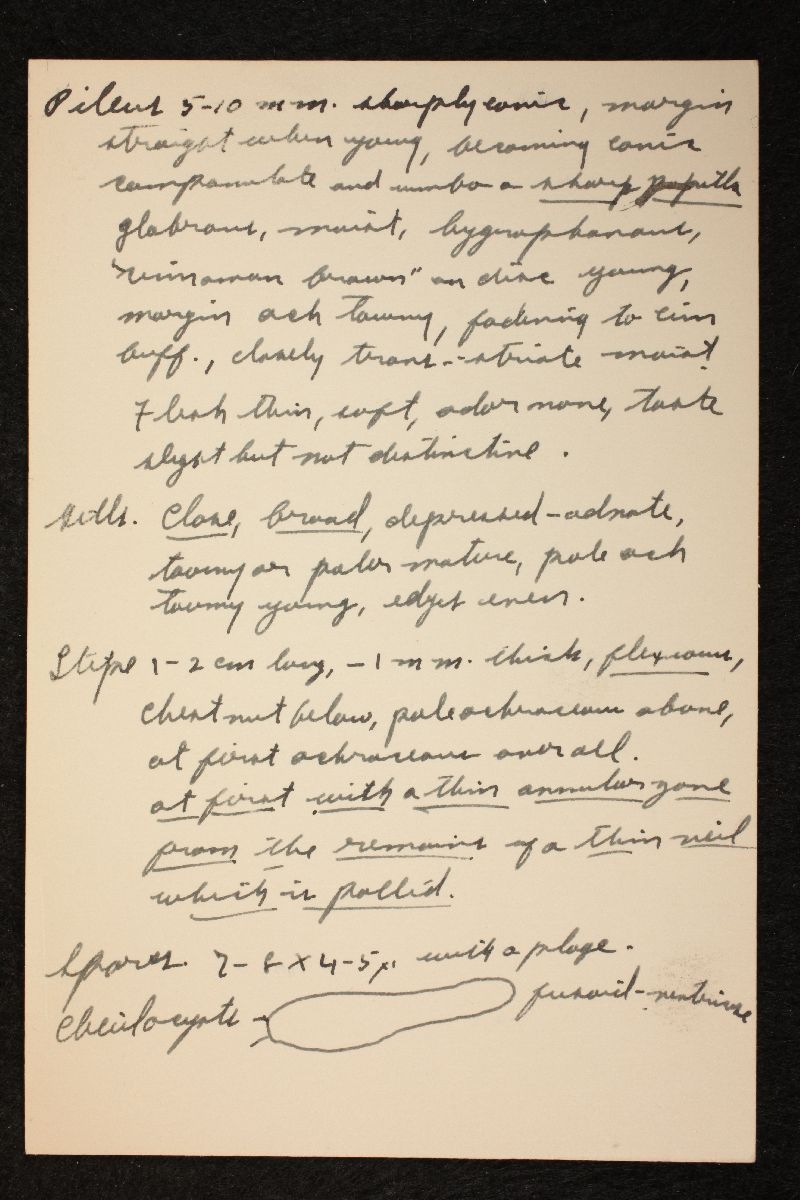 Pileus 5-10 mm. sharply conic, margin
straight when young, becoming conic
campanulate and umbo a sharp papilla
glabrous, moist, hygrophanous,
"cinnamon brown" on disc young,
margin och tawny, fading to cinn
buff., closely trans.-striate moist
Flesh thin, soft, odor none, taste
slight but not distinctive.
Gills. Close, broad, depressed-adnate,
tawny or paler mature, pale och
tawny young, edges even.
Stipe 1-2 cm long, -1 mm. thick, flexuous,
chestnut below, pale ochraceous above,
at first ochraceous over all.
at first with a thin annular zone
from the remains of a thin veil
which is pallid.
Spores. 7-8 X 4-5µ with a plage.
Cheilocysts fusoid-ventricose